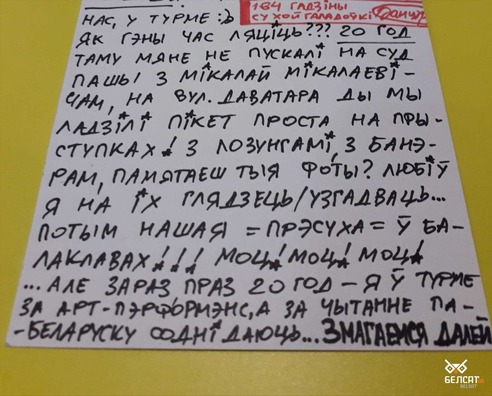 НАС, У ТУРМЕ :Ь
184 ГАДЗІНЫ
СУХОЙ ГАЛАДОЎКІ
ЯК ГЭНЫ ЧАС ЛЯЦІЦЬ??? 20 ГОД
ТАМУ МЯНЕ НЕ ПУСКАЛІ НА СУД
ПАШЫ З МІКАЛАЙ МІКАЛАЕВІ-
ЧАМ, НА ВУЛ. ДАВАТАРА ДЫ МЫ
ЛАДЗІЛІ ПІКЕТ ПРОСТА НА ПРЫ-
СТУПКАХ! З ЛОЗУНГАМІ, З БАНЭ-
РАМ, ПАМЯТАЕШ ТЫЯ ФОТЫ? ЛЮБІЎ
Я НА ІХ ГЛЯДЗЕЦЬ/УЗГАДВАЦЬ...
ПОТЫМ НАШАЯ =ПРЭСУХА= Ў БА-
ЛАКЛАВАХ!!! МОЦ! МОЦ! МОЦ!
...АЛЕ ЗАРАЗ ПРАЗ 20 ГОД – Я Ў ТУРМЕ
ЗА АРТ-ПЭРФОРМЭНС, А ЗА ЧЫТАННЕ ПА-
-БЕЛАРУСКУ СОДНІ ДАЮЦЬ... ЗМАГАЕМСЯ ДАЛЕЙ
БЕЛСАТ
BELSAT